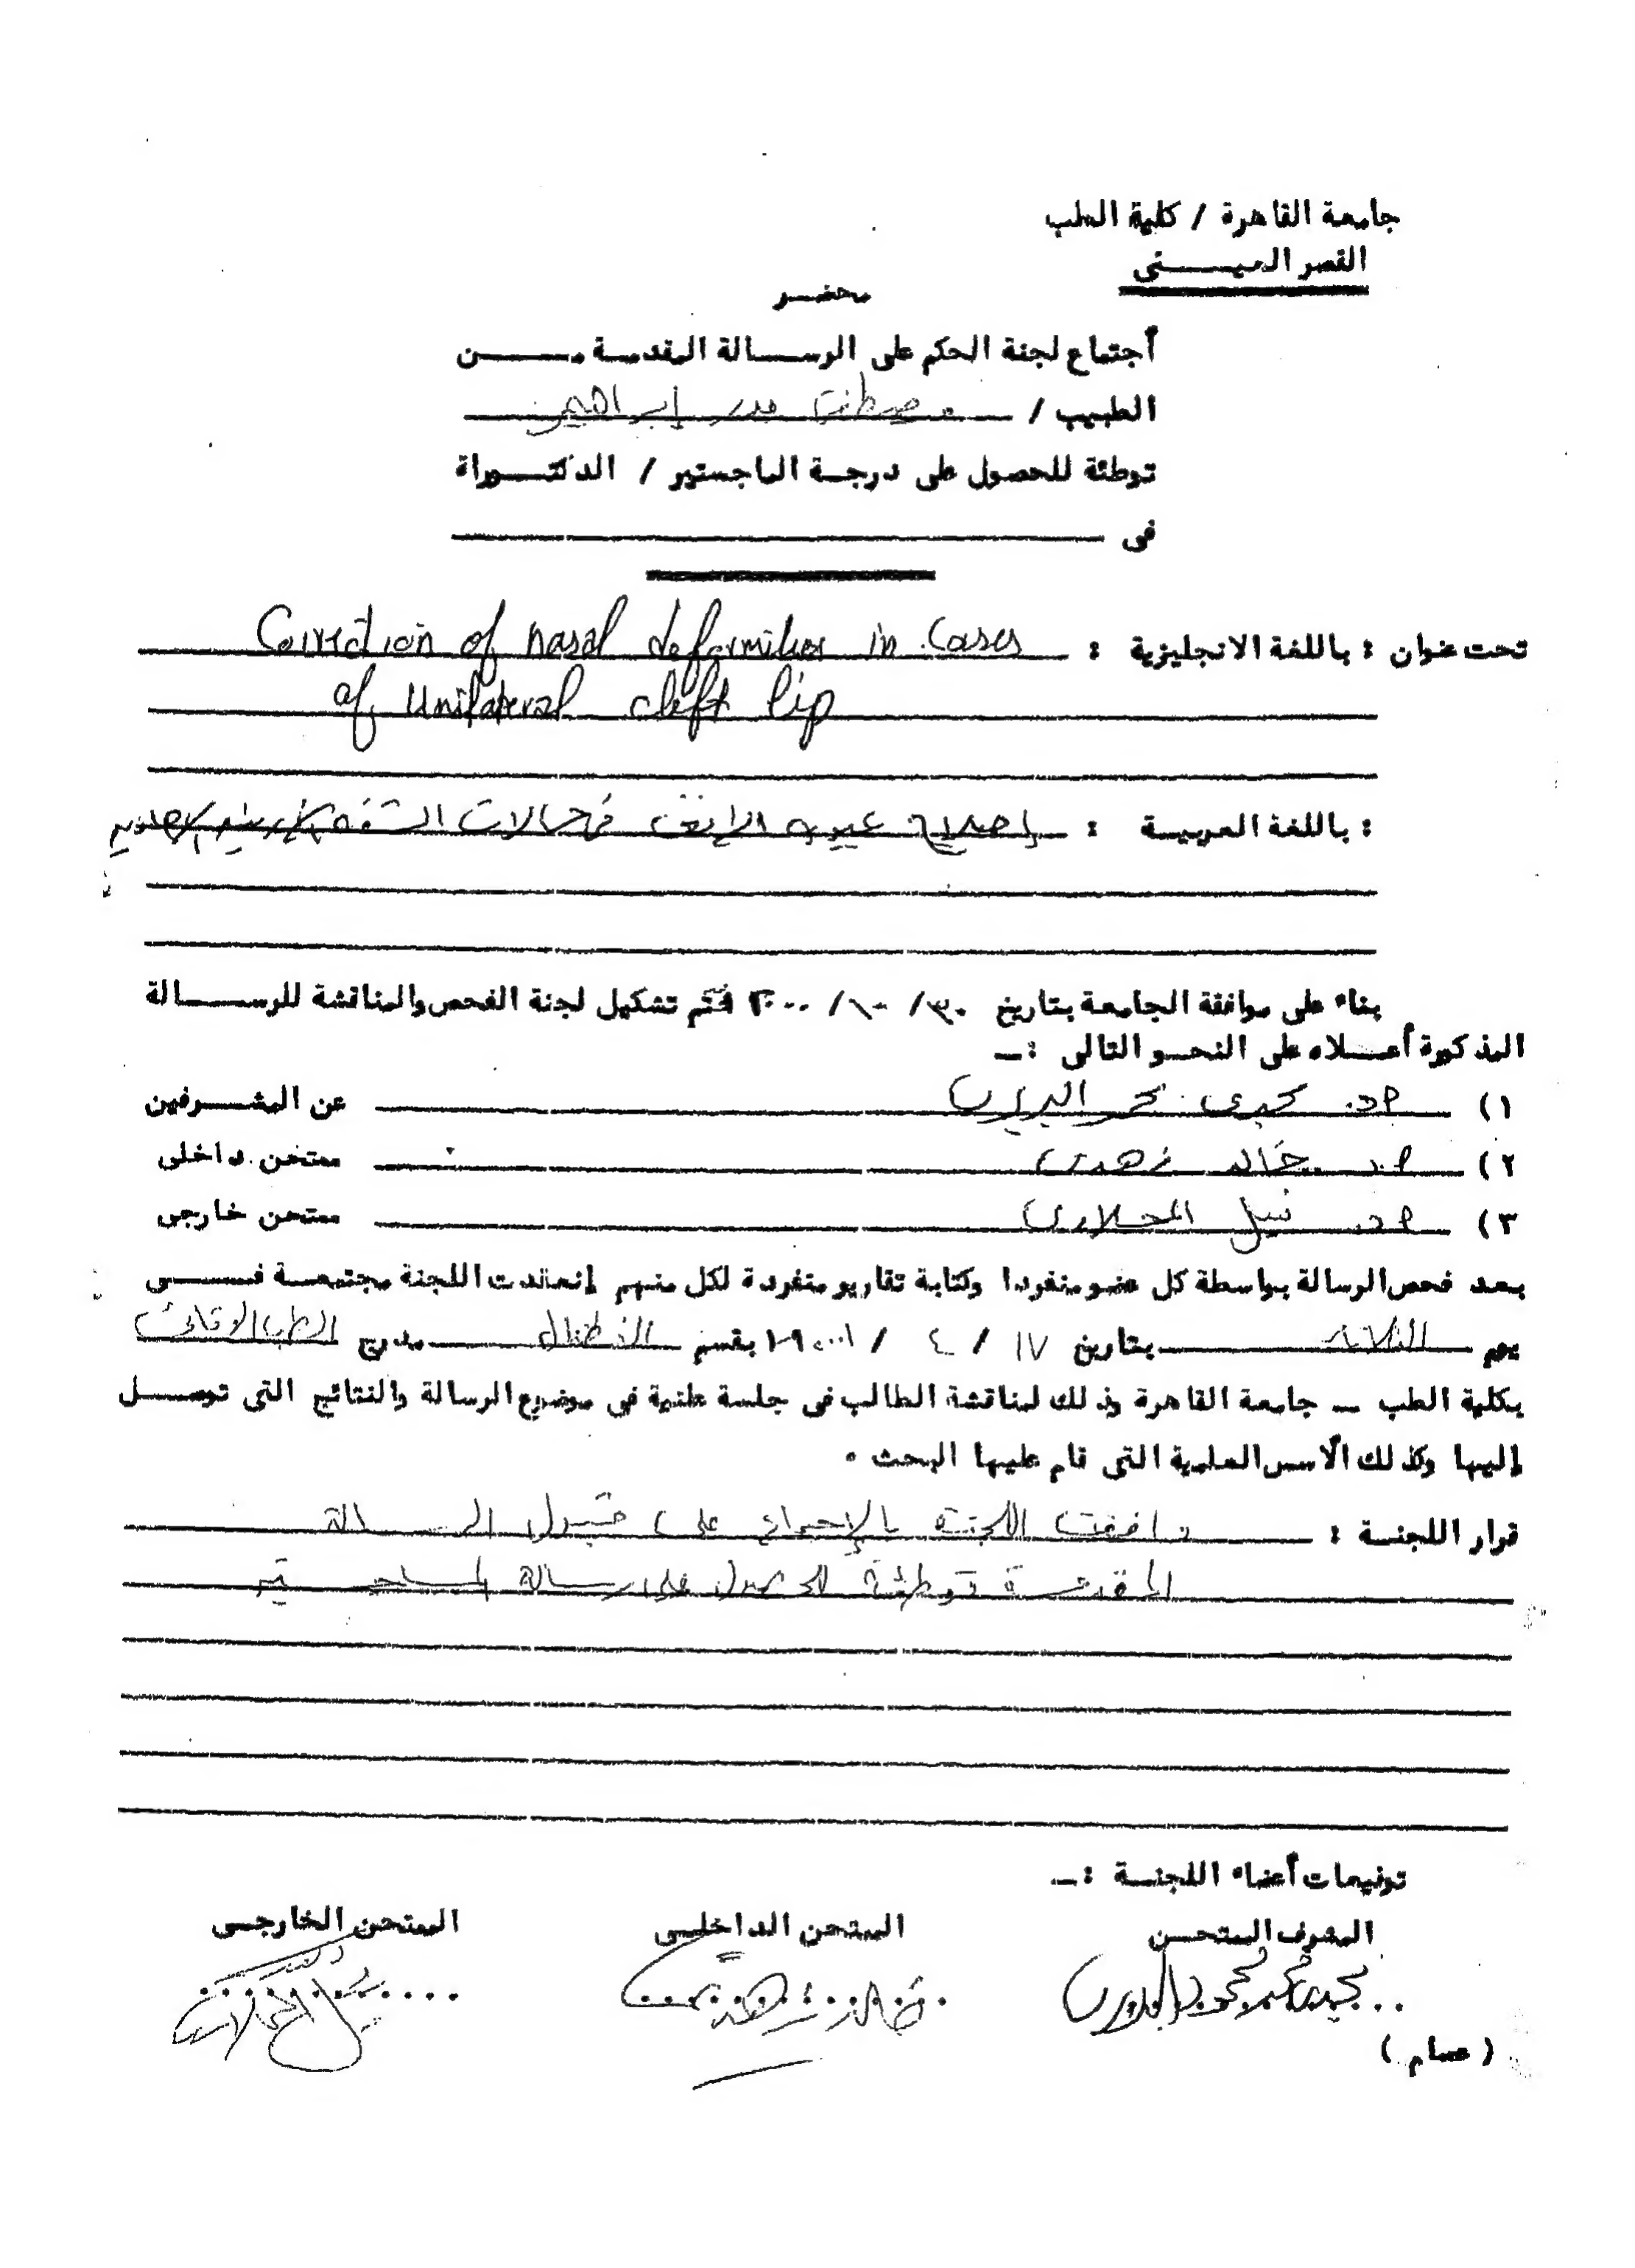 جامعة القاهرة / كلية الطب
القصر العينى
محضر
أجتماع لجنة الحكم على الرسالة المقدمة من
الطبيب / مصطفى بدر إبراهيم
توطئة للحصول على درجة الماجستير / الدكتوراة
فى
تحت عنوان : باللغة الانجليزية : Correction of nasal deformities in cases
of unilateral cleft lip
: باللغة العربية : إصلاح عيوب الأنف فى حالات الشفه
بناء على موافقة الجامعة بتاريخ ٣٠/ ١٠/ ٢٠٠٠ فتم تشكيل لجنة الفحص والمناقشة للرسالة
المذكورة أعلاه على النحو التالى :-
١) أ.د. عن المشرفين
٢) أ.د. خالد زهدى ممتحن داخلى
٣) أ.د. نبيل المحلاوى ممتحن خارجى
بعد فحص الرسالة بواسطة كل عضو منفردا وكتابة تقارير منفردة لكل منهم إنعقدت اللجنة مجتمعة فى
يوم الثلاثاء بتاريخ ١٧ / ٤ / بقسم الأطفال مدرج الطب الوقائى
بكلية الطب - جامعة القاهرة وذلك لمناقشة الطالب فى جلسة علنية فى موضوع الرسالة والنتائج التى توصل
إليها وكذلك الأسس العلمية التى قام عليها البحث .
قرار اللجنة : وافقت اللجنة بالإجماع على قبول الرسالة
المقدمة توطئة للحصول على رسالة الماجستير
توقيعات أعضاء اللجنة :-
المشرف الممتحن الممتحن الداخلى الممتحن الخارجى
(عصام)